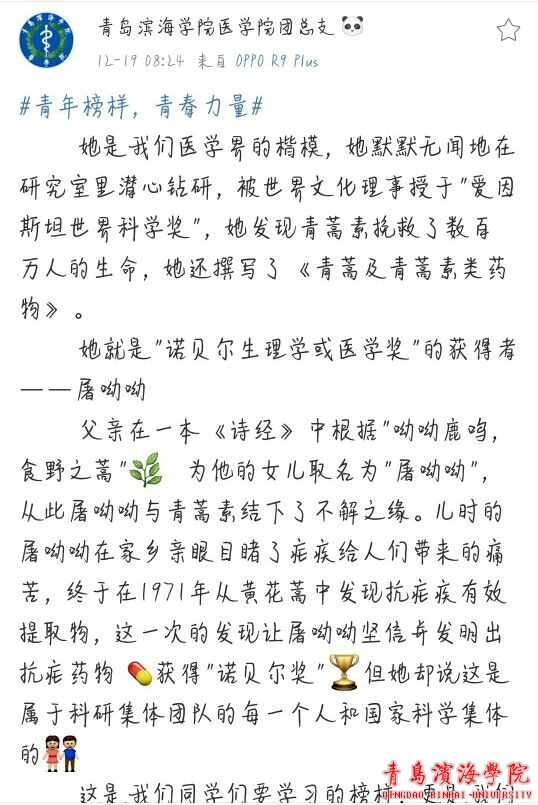 青岛滨海学院医学院团总支🐼
12-19 08:24 来自 OPPO R9 Plus
#青年榜样，青春力量#
她是我们医学界的楷模，她默默无闻地在
研究室里潜心钻研，被世界文化理事授于"爱因
斯坦世界科学奖"，她发现青蒿素挽救了数百
万人的生命，她还撰写了《青蒿及青蒿素类药
物》。
她就是"诺贝尔生理学或医学奖"的获得者
——屠呦呦
父亲在一本《诗经》中根据"呦呦鹿鸣，
食野之蒿"🌿 为他的女儿取名为"屠呦呦"，
从此屠呦呦与青蒿素结下了不解之缘。儿时的
屠呦呦在家乡亲眼目睹了疟疾给人们带来的痛
苦，终于在1971年从黄花蒿中发现抗疟疾有效
提取物，这一次的发现让屠呦呦坚信并发明出
抗疟药物💊获得"诺贝尔奖"🏆但她却说这是
属于科研集体团队的每一个人和国家科学集体
的👫
这是我们同学们要学习的榜样
青島濱海學院
QINGDAO BINHAI UNIVERSITY